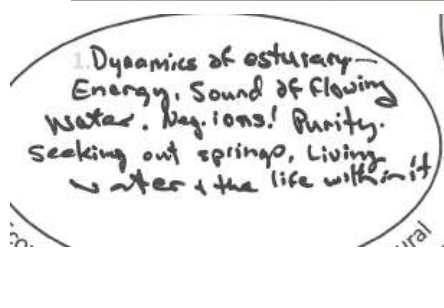 1. Dynamics of esturary—
Energy. Sound of flowing
water. Neg. ions! Purity.
Seeking out springs, Living
water & the life within it